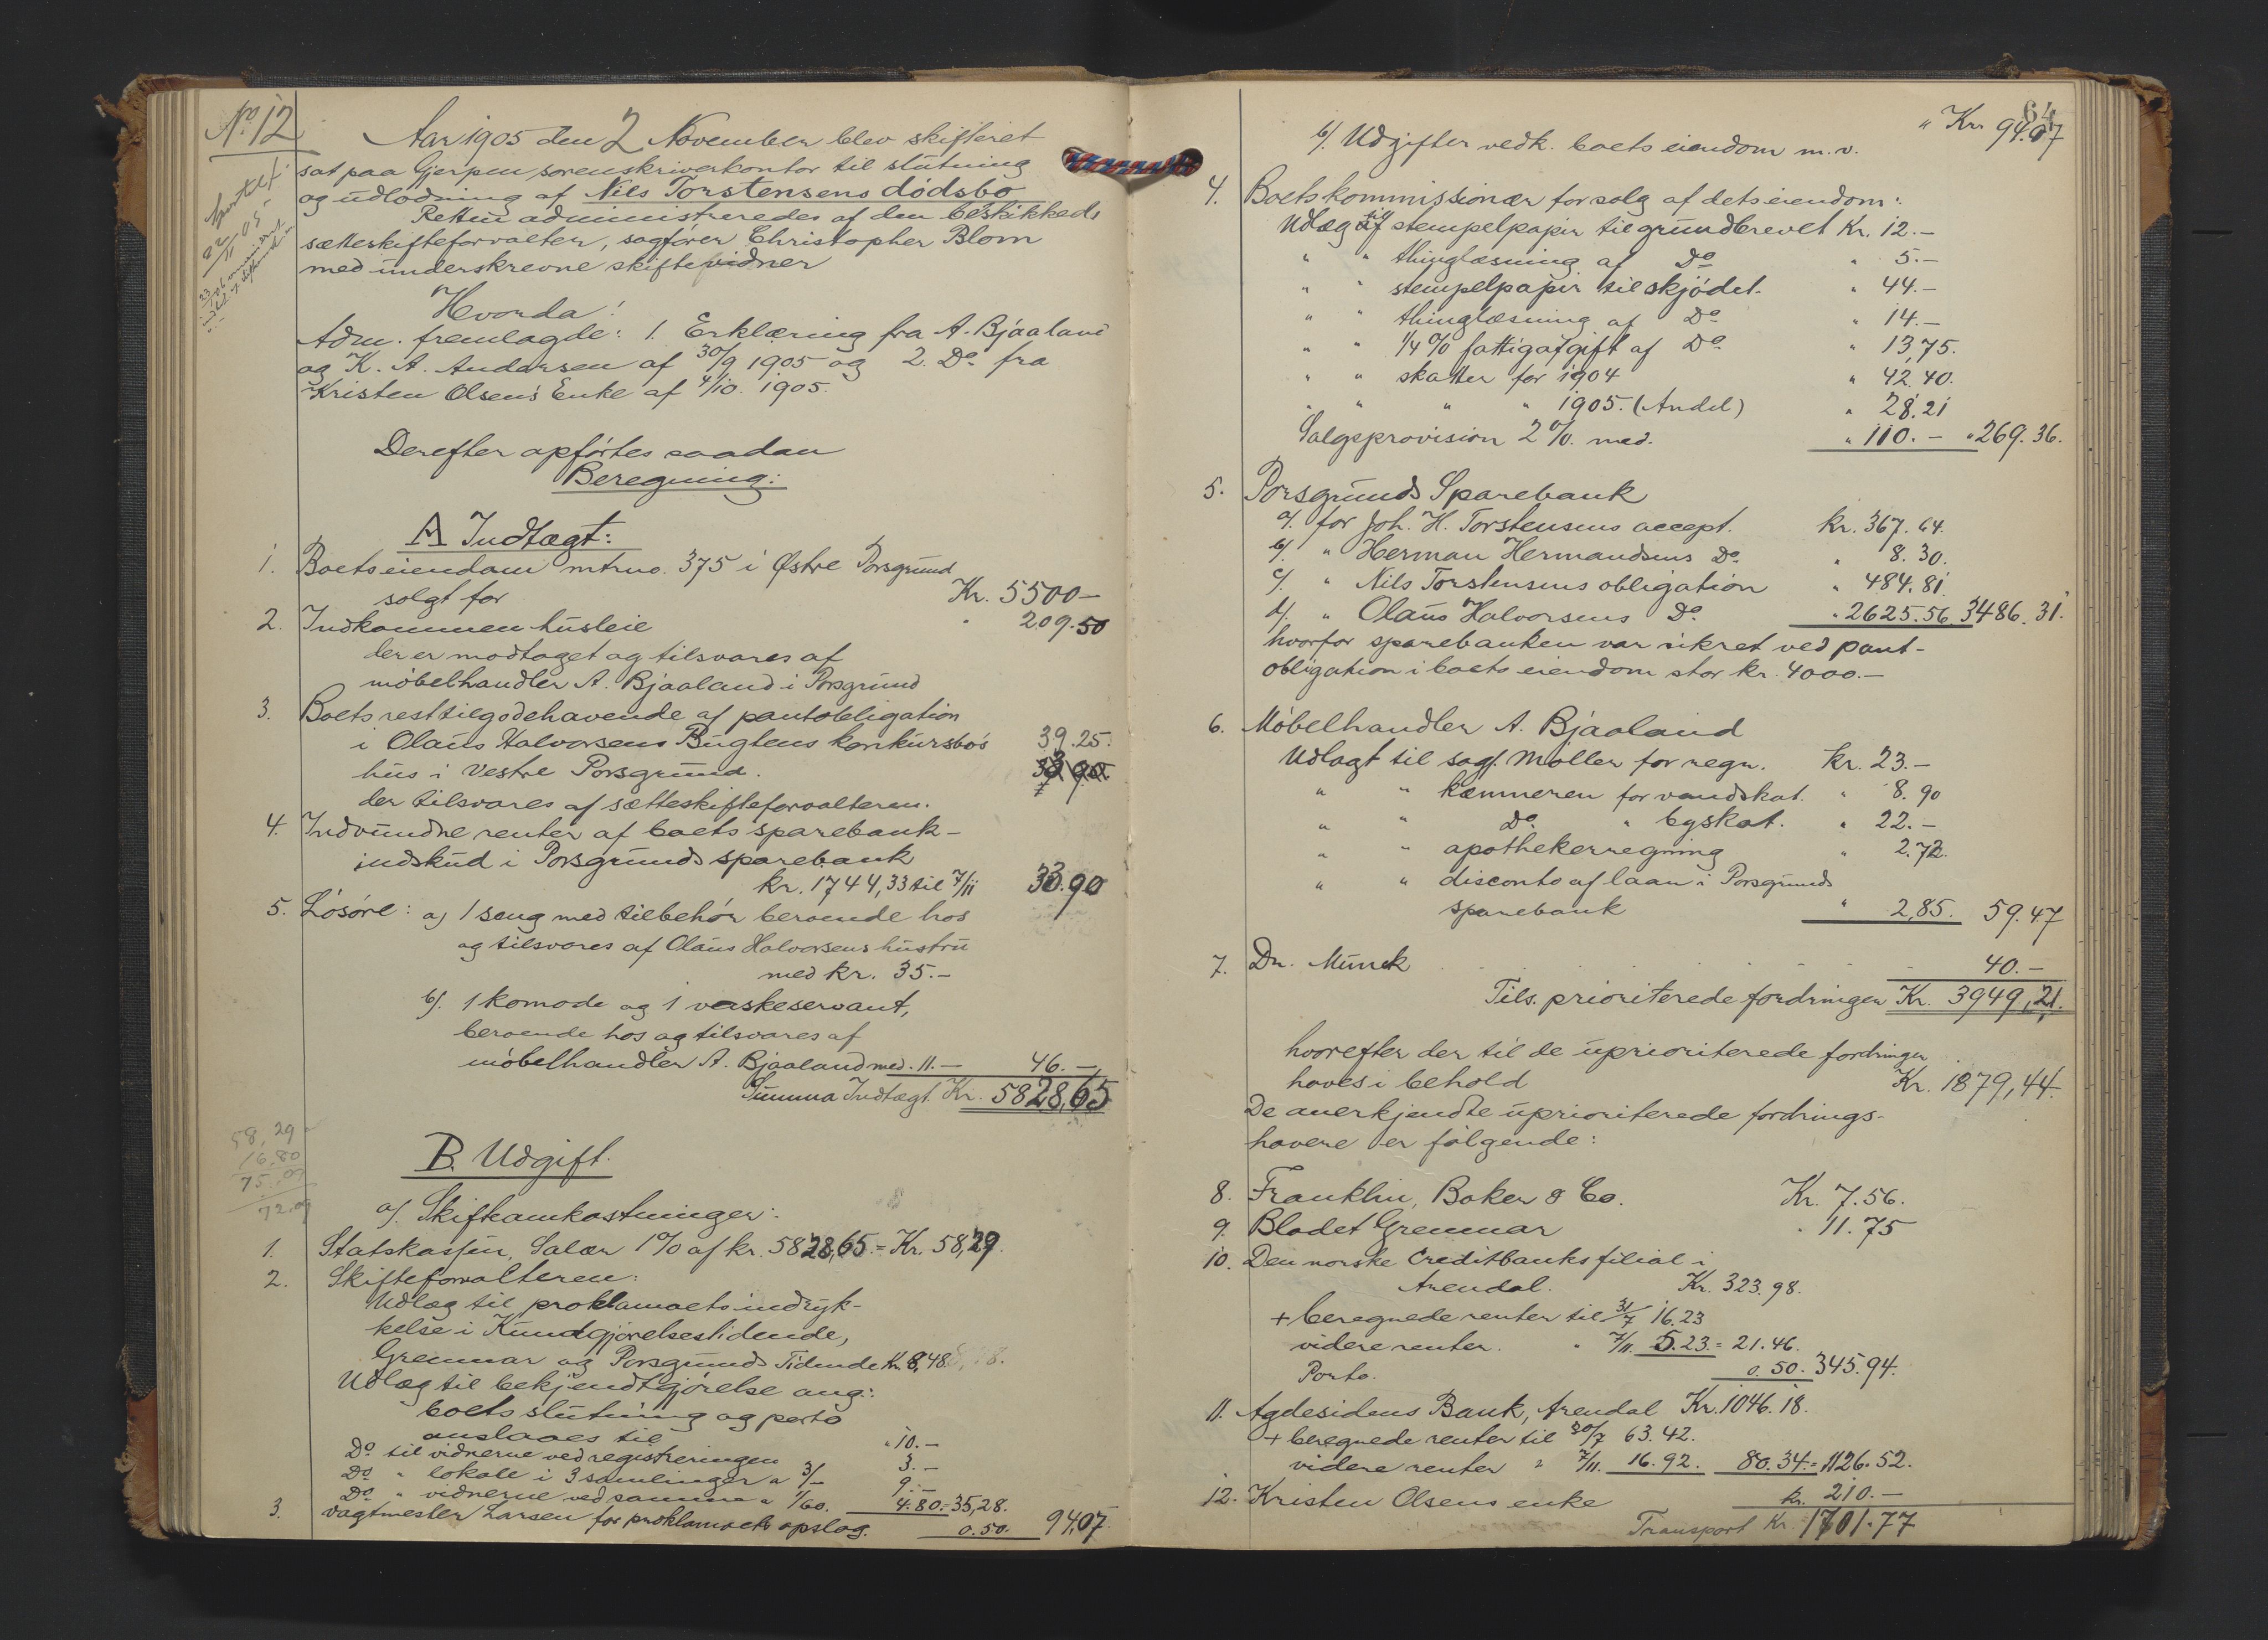 No 12
Aar 1905 den 2 November blev skifteret
sat paa Gjerpen sorenskriverkontor til slutning
og udlodning af Nils Torstensens dödsbo
Retten administreredes af den beskikkede
sætteskifteforvalter, sagförer Christopher Blom
med underskrevne skiftevidner
Hvorda:
Adm. fremlagde: 1. Erklæring fra A. Bjaaland
og K. A. Andersen af 30/9 1905 og 2. Do fra
Kristen Olsens Enke af 4/10. 1905.
Derefter opförtes saadan
Beregning:
A Indtægt:
1. Boets eiendom mtrno. 375 i Østre Porsgrund
solgt for Kr. 5500-
2. Indkommen husleie " 209.50
der er modtaget og tilsvares af
möbelhandler A. Bjaaland i Porsgrund
3. Boets resttilgodehavende af pantobligation
i Olaus Halvorsens Bugtens konkursbo's 39.25.
hus i Vestre Porsgrund.
der tilsvares af sætteskifteforvalteren.
4. Indvundne renter af boets sparebank-
indskud i Porsgrunds sparebank
kr. 1744,33 til 7/11 33.90
5. Lösöre: a) 1 seng med tilbehör beroende hos
og tilsvares af Olaus Halvorsens hustru
med kr. 35.-
b). 1 komode og 1 vaskeservant,
beroende hos og tilsvares af
möbelhandler A. Bjaaland med. 11.- 46.-
Summa Indtægt Kr. 5828,65
58,29
16,80
75.09
72.09
B. Udgift.
a/. Skifteomkostninger:
1. Statskassen, Salær 1% af kr. 5828,65 = Kr. 58,29.
2. Skifteforvalteren:
Udlæg til proklamaets indryk-
kelse i Kundgjörelsestidende,
Grenmar og Porsgrunds Tidende Kr. 8,48
Udlæg til bekjendtgjörelse ang:
boets slutning og porto
anslaaes til " 10.-
Do til vidnerne ved registreringen 3.-
Do " lokale i 3 samlinger a 3/- 9.-
Do " vidnerne ved samme a 1/60. 4.80.= 35,28.
3. Vagtmester Larsen for proklamaets opslag. 0.50. 94,07.
64
" Kr. 94.07
b/. Udgifter vedk. boets eiendom m.v.
4. Boets kommissionær for salg af dets eiendom:
Udlæg til stempelpapir til grundbrevet Kr. 12.-
" " thinglæsning af Do " 5.-
" " stempelpapir til skjödet. " 44.-
" " thinglæsning af Do " 14.-
" " 1/4 % fattigafgift af Do " 13,75.
" " skatter for 1904 " 42.40.
" " " " 1905. (Andel) " 28.21
Salgsprovision 2%. med. " 110.- " 269.36.
5. Porsgrunds Sparebank
a/. for Joh. H. Torstensens accept. kr. 367.64.
b/. " Herman Hermandsens Do " 8.30.
c/. " Nils Torstensens obligation " 484.81.
d/. " Olaus Halvorsens Do " 2625.56. 3486.31.
hvorfor sparebanken var sikret ved pant-
obligation i boets eiendom stor kr. 4000.-
6. Möbelhandler A. Bjaaland
Udlagt til sagf. Möller for regn. kr. 23.-
" " kæmneren for vandskat. " 8.90
" " Do. " byskat. " 22.-
" " apothekerregning " 2.72.
" " disconto af laan i Porsgrunds
sparebank " 2,85. 59.47
7. Dr. Munck 40.-
Tils. prioriterede fordringer Kr. 3949,21.
hvorefter der til de uprioriterede fordringer
haves i behold Kr. 1879,44.
De anerkjendte uprioriterede fordrings-
havere er fölgende:
8. Franklin, Baker & Co. Kr. 7.56.
9. Bladet Grenmar " 11.75
10. Den norske Creditbanks filial i
Arendal. Kr. 323.98.
+ beregnede renter til 31/7 16.23
videre renter. " 7/11. 5.23.= 21.46.
Porto. 0.50. 345.94.
11. Agdesidens Bank, Arendal Kr. 1046.18.
+ beregnede renter til 20/7 63.42.
videre renter " 7/11. 16.92. 80.34.= 1126.52.
12. Kristen Olsens enke kr. 210.-
Transport Kr. 1701.77